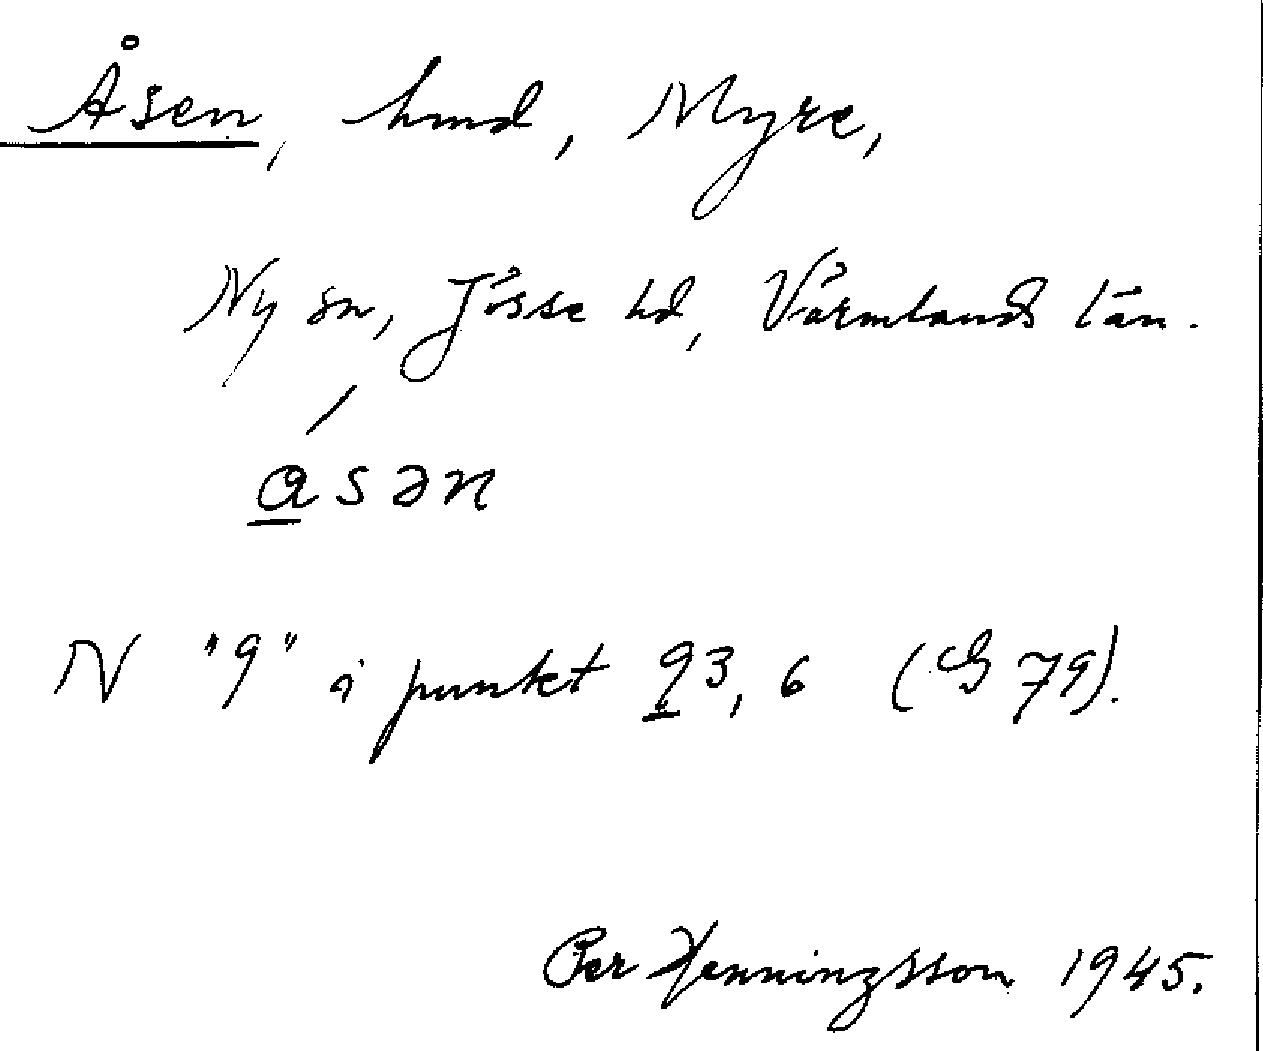 Åsen, hmd, Myre,
Ny sn, Jösse hd, Värmlands län.
ásən
N "9" i punkt 93, 6 (G 79).
Per Henningsson 1945.